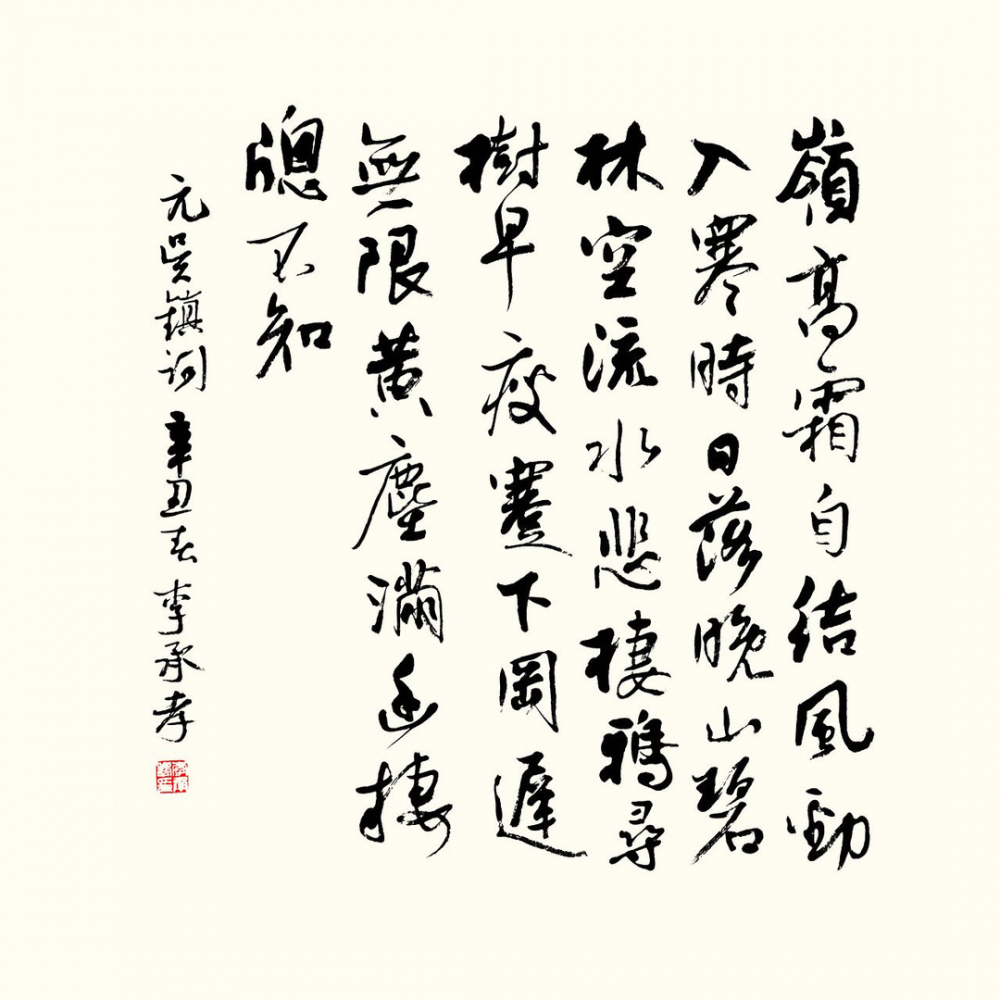 嶺高霜自結風勁
入寒時日落晚山碧
林空流水悲棲鴉尋
樹早瘦蹇下岡遲
無限黃塵滿幽棲
總不知
元吳鎮詞辛丑春李承孝